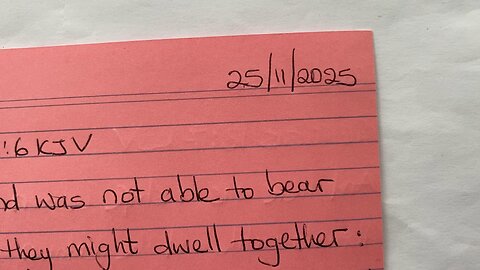 25/11/2025
:6 KJV
nd was not able to bear
they might dwell together: